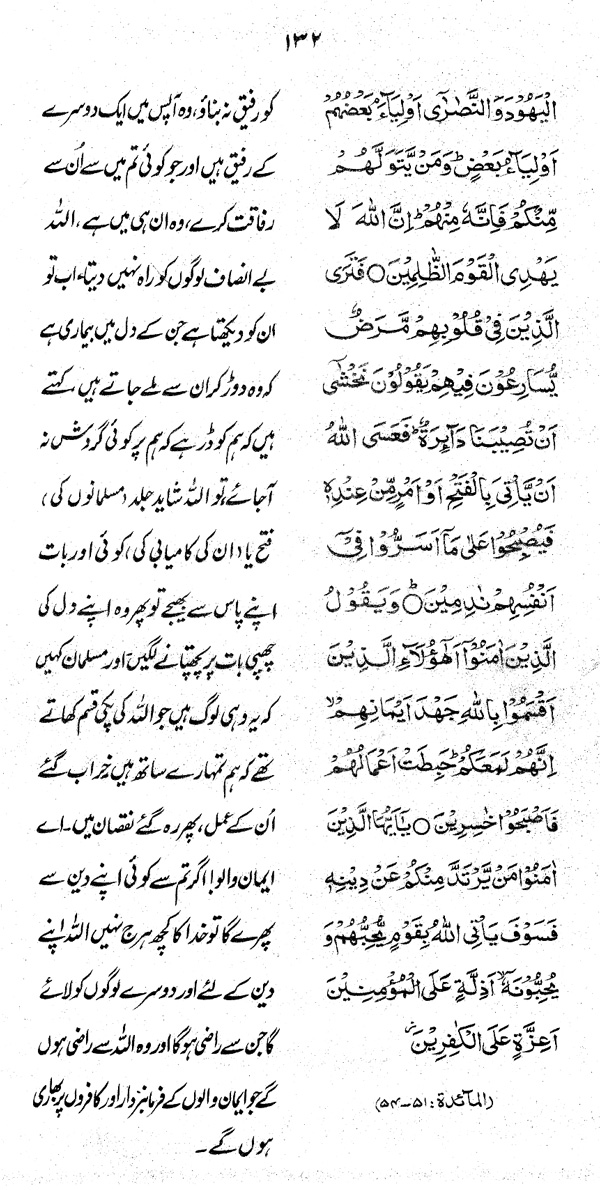 ۱۳۲
الْیَهُوْدَ وَالنَّصٰرٰٓی اَوْلِیَآءَ بَعْضُهُمْ
اَوْلِیَآءُ بَعْضٍ وَمَنْ یَّتَوَلَّهُمْ
مِّنْکُمْ فَاِنَّهٗ مِنْهُمْ اِنَّ اللّٰهَ لَا
یَهْدِی الْقَوْمَ الظّٰلِمِیْنَ ○ فَتَرَی
الَّذِیْنَ فِیْ قُلُوْبِهِمْ مَّرَضٌ
یُّسَارِعُوْنَ فِیْهِمْ یَقُوْلُوْنَ نَخْشٰٓی
اَنْ تُصِیْبَنَا دَآئِرَةٌ فَعَسَی اللّٰهُ
اَنْ یَّاْتِیَ بِالْفَتْحِ اَوْ اَمْرٍ مِّنْ عِنْدِهٖ
فَیُصْبِحُوْا عَلٰی مَآ اَسَرُّوْا فِیْٓ
اَنْفُسِهِمْ نٰدِمِیْنَ ○ وَیَقُوْلُ
الَّذِیْنَ اٰمَنُوْٓا اَهٰٓؤُلَآءِ الَّذِیْنَ
اَقْسَمُوْا بِاللّٰهِ جَهْدَ اَیْمَانِهِمْ
اِنَّهُمْ لَمَعَکُمْ حَبِطَتْ اَعْمَالُهُمْ
فَاَصْبَحُوْا خٰسِرِیْنَ ○ یٰٓاَیُّهَا الَّذِیْنَ
اٰمَنُوْا مَنْ یَّرْتَدَّ مِنْکُمْ عَنْ دِیْنِهٖ
فَسَوْفَ یَاْتِی اللّٰهُ بِقَوْمٍ یُّحِبُّهُمْ وَ
یُحِبُّوْنَهٗٓ اَذِلَّةٍ عَلَی الْمُؤْمِنِیْنَ
اَعِزَّةٍ عَلَی الْکٰفِرِیْنَ
(المآئدة: ۵۱-۵۴)
کو رفیق نہ بناؤ، وہ آپس میں ایک دوسرے
کے رفیق ہیں اور جو کوئی تم میں سے اُن سے
رفاقت کرے، وہ ان ہی میں ہے، اللہ
بے انصاف لوگوں کو راہ نہیں دیتا، اب تو
ان کو دیکھتا ہے جن کے دل میں بیماری ہے
کہ وہ دوڑ کر ان سے ملے جاتے ہیں، کہتے
ہیں کہ ہم کو ڈر ہے کہ ہم پر کوئی گردش نہ
آجائے، تو اللہ شاید جلد (مسلمانوں کی)
فتح یا د ان کی کامیابی کی، کوئی اور بات
اپنے پاس سے بھیجے تو پھر وہ اپنے دل کی
چھپی بات پر پچھتانے لگیں، اور مسلمان کہیں
کہ یہ وہی لوگ ہیں جو اللہ کی پکی قسم کھاتے
تھے کہ ہم تمہارے ساتھ ہیں، خراب گئے
اُن کے عمل، پھر رہ گئے نقصان میں۔ اے
ایمان والو! اگر تم سے کوئی اپنے دین سے
پھرے گا تو خدا کا کچھ ہرج نہیں اللہ اپنے
دین کے لئے اور دوسرے لوگوں کو لائے
گا جن سے راضی ہوگا اور وہ اللہ سے راضی ہوں
گے جو ایمان والوں کے فرمانبردار اور کافروں پر بھاری
ہوں گے۔